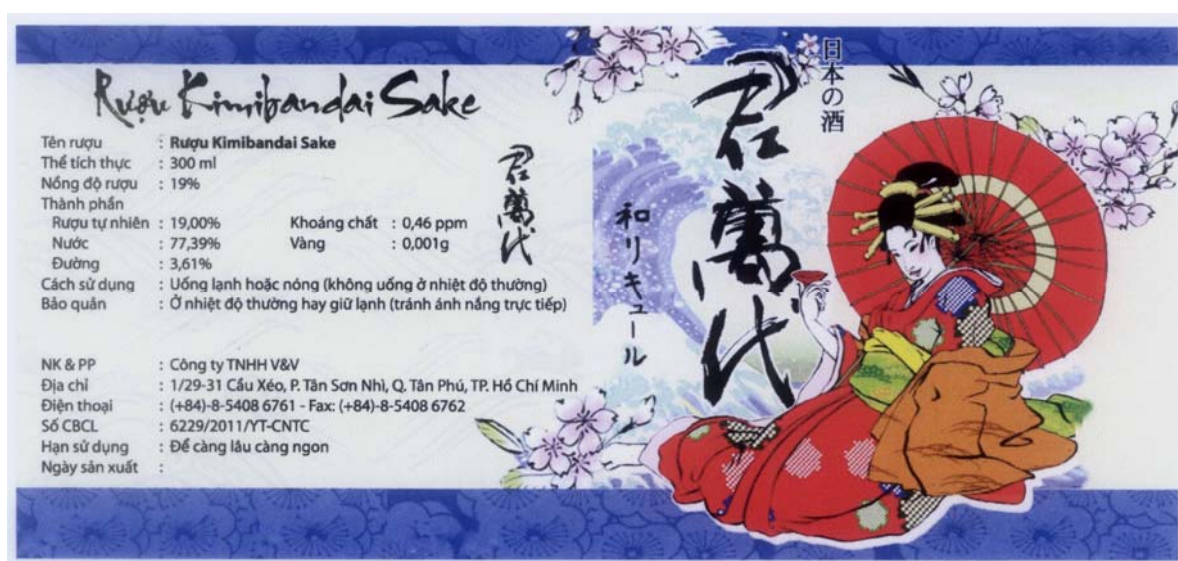 Rượu Kimibandai Sake
Tên rượu : Rượu Kimibandai Sake
Thể tích thực : 300 ml
Nồng độ rượu : 19%
Thành phần
Rượu tự nhiên : 19,00% Khoáng chất : 0,46 ppm
Nước : 77,39% Vàng : 0,001g
Đường : 3,61%
Cách sử dụng : Uống lạnh hoặc nóng (không uống ở nhiệt độ thường)
Bảo quản : Ở nhiệt độ thường hay giữ lạnh (tránh ánh nắng trực tiếp)
NK & PP : Công ty TNHH V&V
Địa chỉ : 1/29-31 Cầu Xéo, P. Tân Sơn Nhì, Q. Tân Phú, TP. Hồ Chí Minh
Điện thoại : (+84)-8-5408 6761 - Fax: (+84)-8-5408 6762
Số CBCL : 6229/2011/YT-CNTC
Hạn sử dụng : Để càng lâu càng ngon
Ngày sản xuất :
君萬代
和リキュール
君萬代
日本の酒